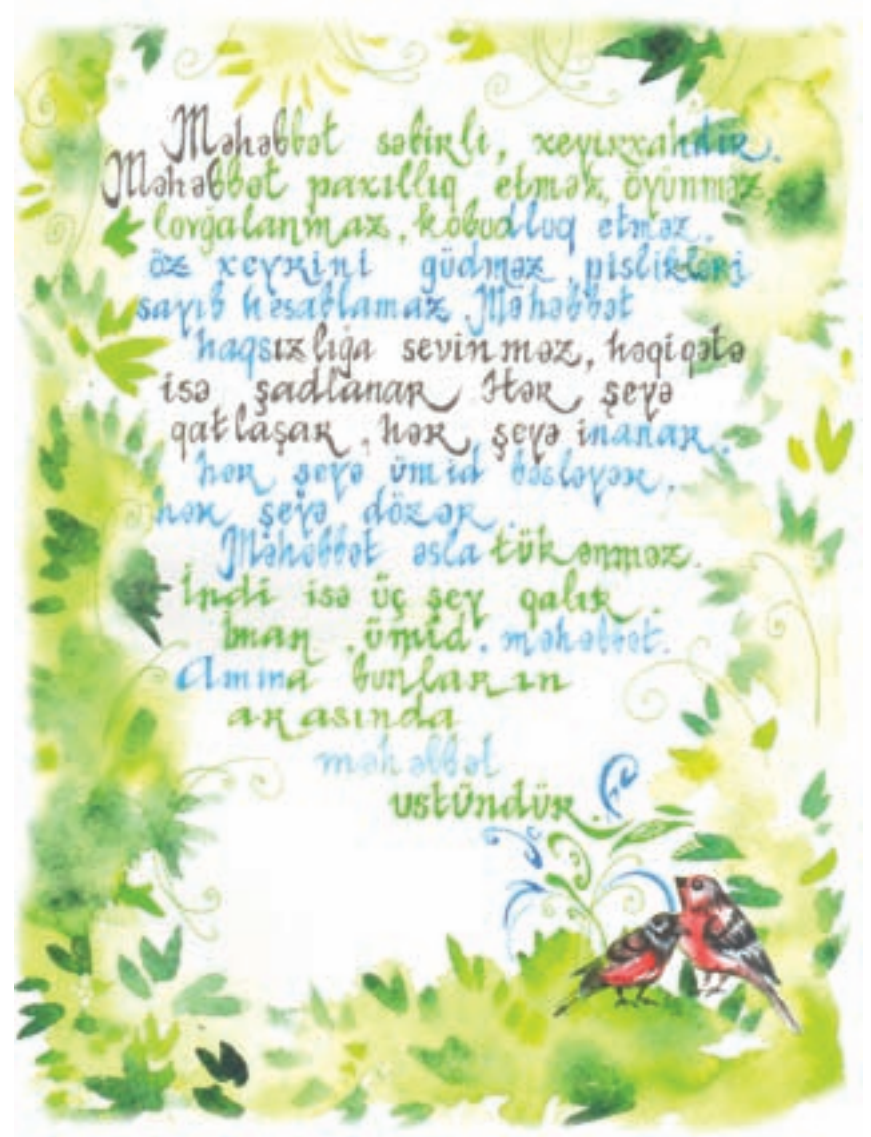 Məhəbbət səbirli, xeyirxahdır.
Məhəbbət paxıllıq etməz, öyünməz,
lovğalanmaz, kobudluq etməz,
öz xeyrini güdməz, pislikləri
sayıb hesablamaz. Məhəbbət
haqsızlığa sevinməz, həqiqətə
isə şadlanar. Hər şeyə
qatlaşar, hər şeyə inanar,
hər şeyə ümid bəsləyər,
hər şeyə dözər.
Məhəbbət əsla tükənməz.
İndi isə üç şey qalır.
İman, ümid, məhəbbət.
Amma bunların
arasında
məhəbbət
ustündür.